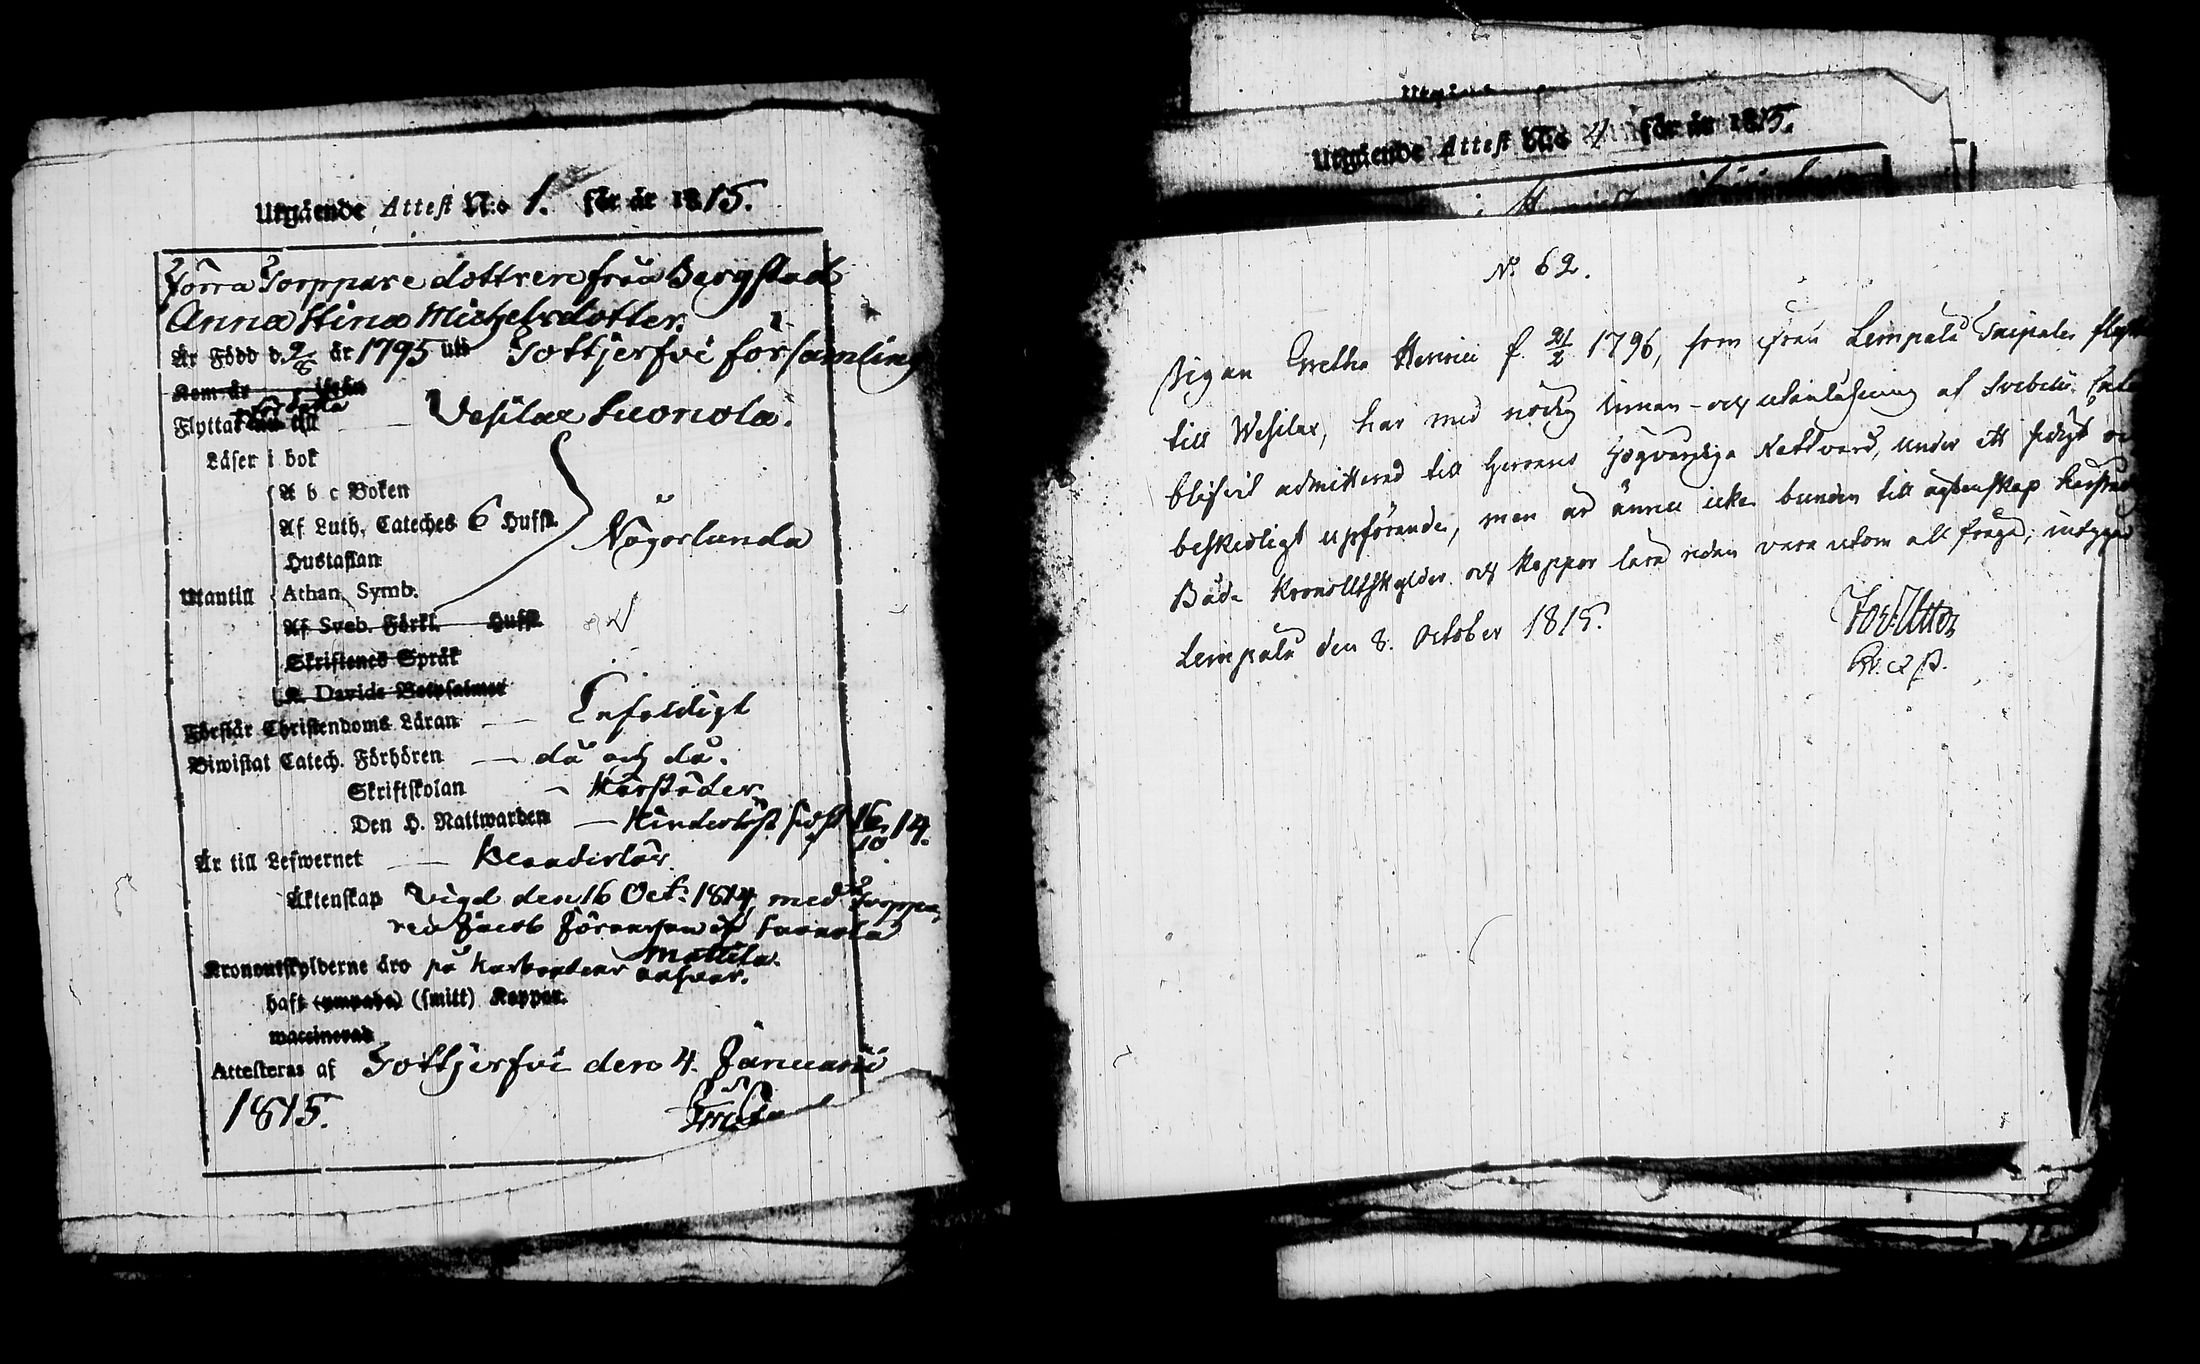 Utgående Attest N:o 1. för år 1815.
Förra Torppare dottren från Bergstad
Anna Stina Michelsdotter.
Är Född d. 2/6 år 1795 uti Tottjerfvi församling
Kom år ifrån
Flyttat till Vesilax Suonola.
Läser i bok
A b c Boken
Af Luth. Cateches 6 Hufst.
Någorlunda
Hustaflan
Utantill
Athan. Symb.
Af Sveb. Förkl. Hufst.
Skriftenes Språk
K. Davids Botpsalmer
Förstår Christendoms Läran — Enfaldigt
Biwistat Catech. Förhören — då och då.
Skriftskolan —
Den H. Nattwarden — Hinderlöst sidst 16/10 14.
Är till Lefwernet — Klanderlös
Äktenskap Vigd den 16 Oct: 1814 med Torppa-
ren Jacob Göransson Suonola
Mattila.
Kronoutskylderne äro på Husbondens ansvar.
haft (ympade) (smitt) Koppor.
waccinerad
Attesteras af Tottjerfvi den 4. Januarii
1815.
Utgående Attest N:o 4 för år 1815.
N:o 62.
Pigan Gretha Henrici f. 21/2 1796, som ifrån Lempälä Taipale
till Wesilax, har med nödig innan- och utanläsning af Svebelii
blifvit admitterad till Herrans Högvärdiga Nattvard, under ett sedigt
beskedligt upförande, men är ännu icke bunden till ägtenskap
Både Kronoutskylder och Koppor lära redan vara utom all fråga, intygar
Lempälä den 8. October 1815.